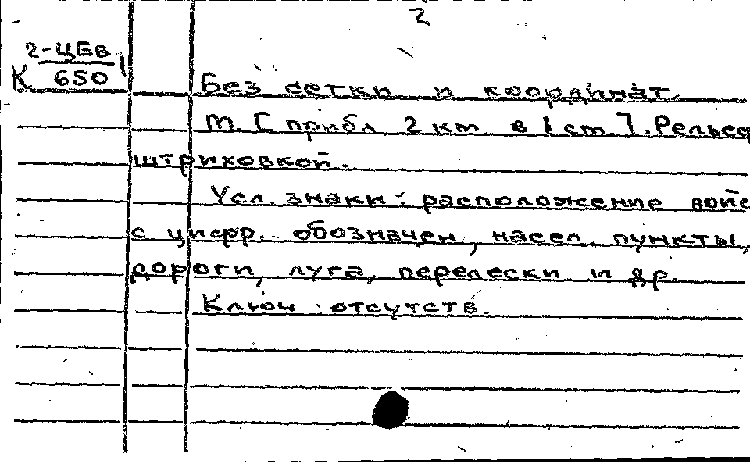 2
2-ЦЕв
К 650
Без сетки и координат.
М. [ прибл 2 км в 1 см ]. Рельеф
штриховкой.
Усл. знаки: расположение войс
с цифр. обозначен, насел. пункты,
дороги, луга, перелески и др.
Ключ отсутств.